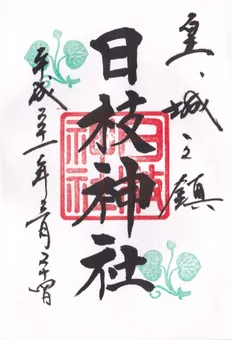 皇城之鎮
日枝神社
日枝神社
平成二十一年三月二十四日